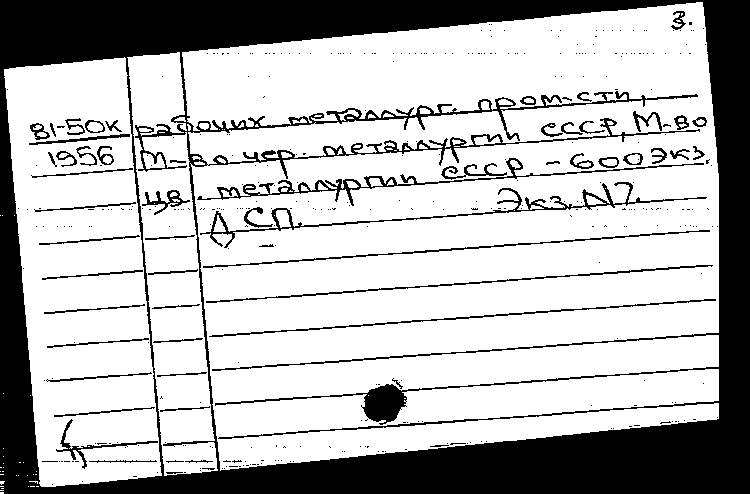 3.
81-50к рабочих металлург. пром-сти,
1956 М-во чер. металлургии СССР, М-во
цв. металлургии СССР. - 600 экз.
СП. Экз. N7.